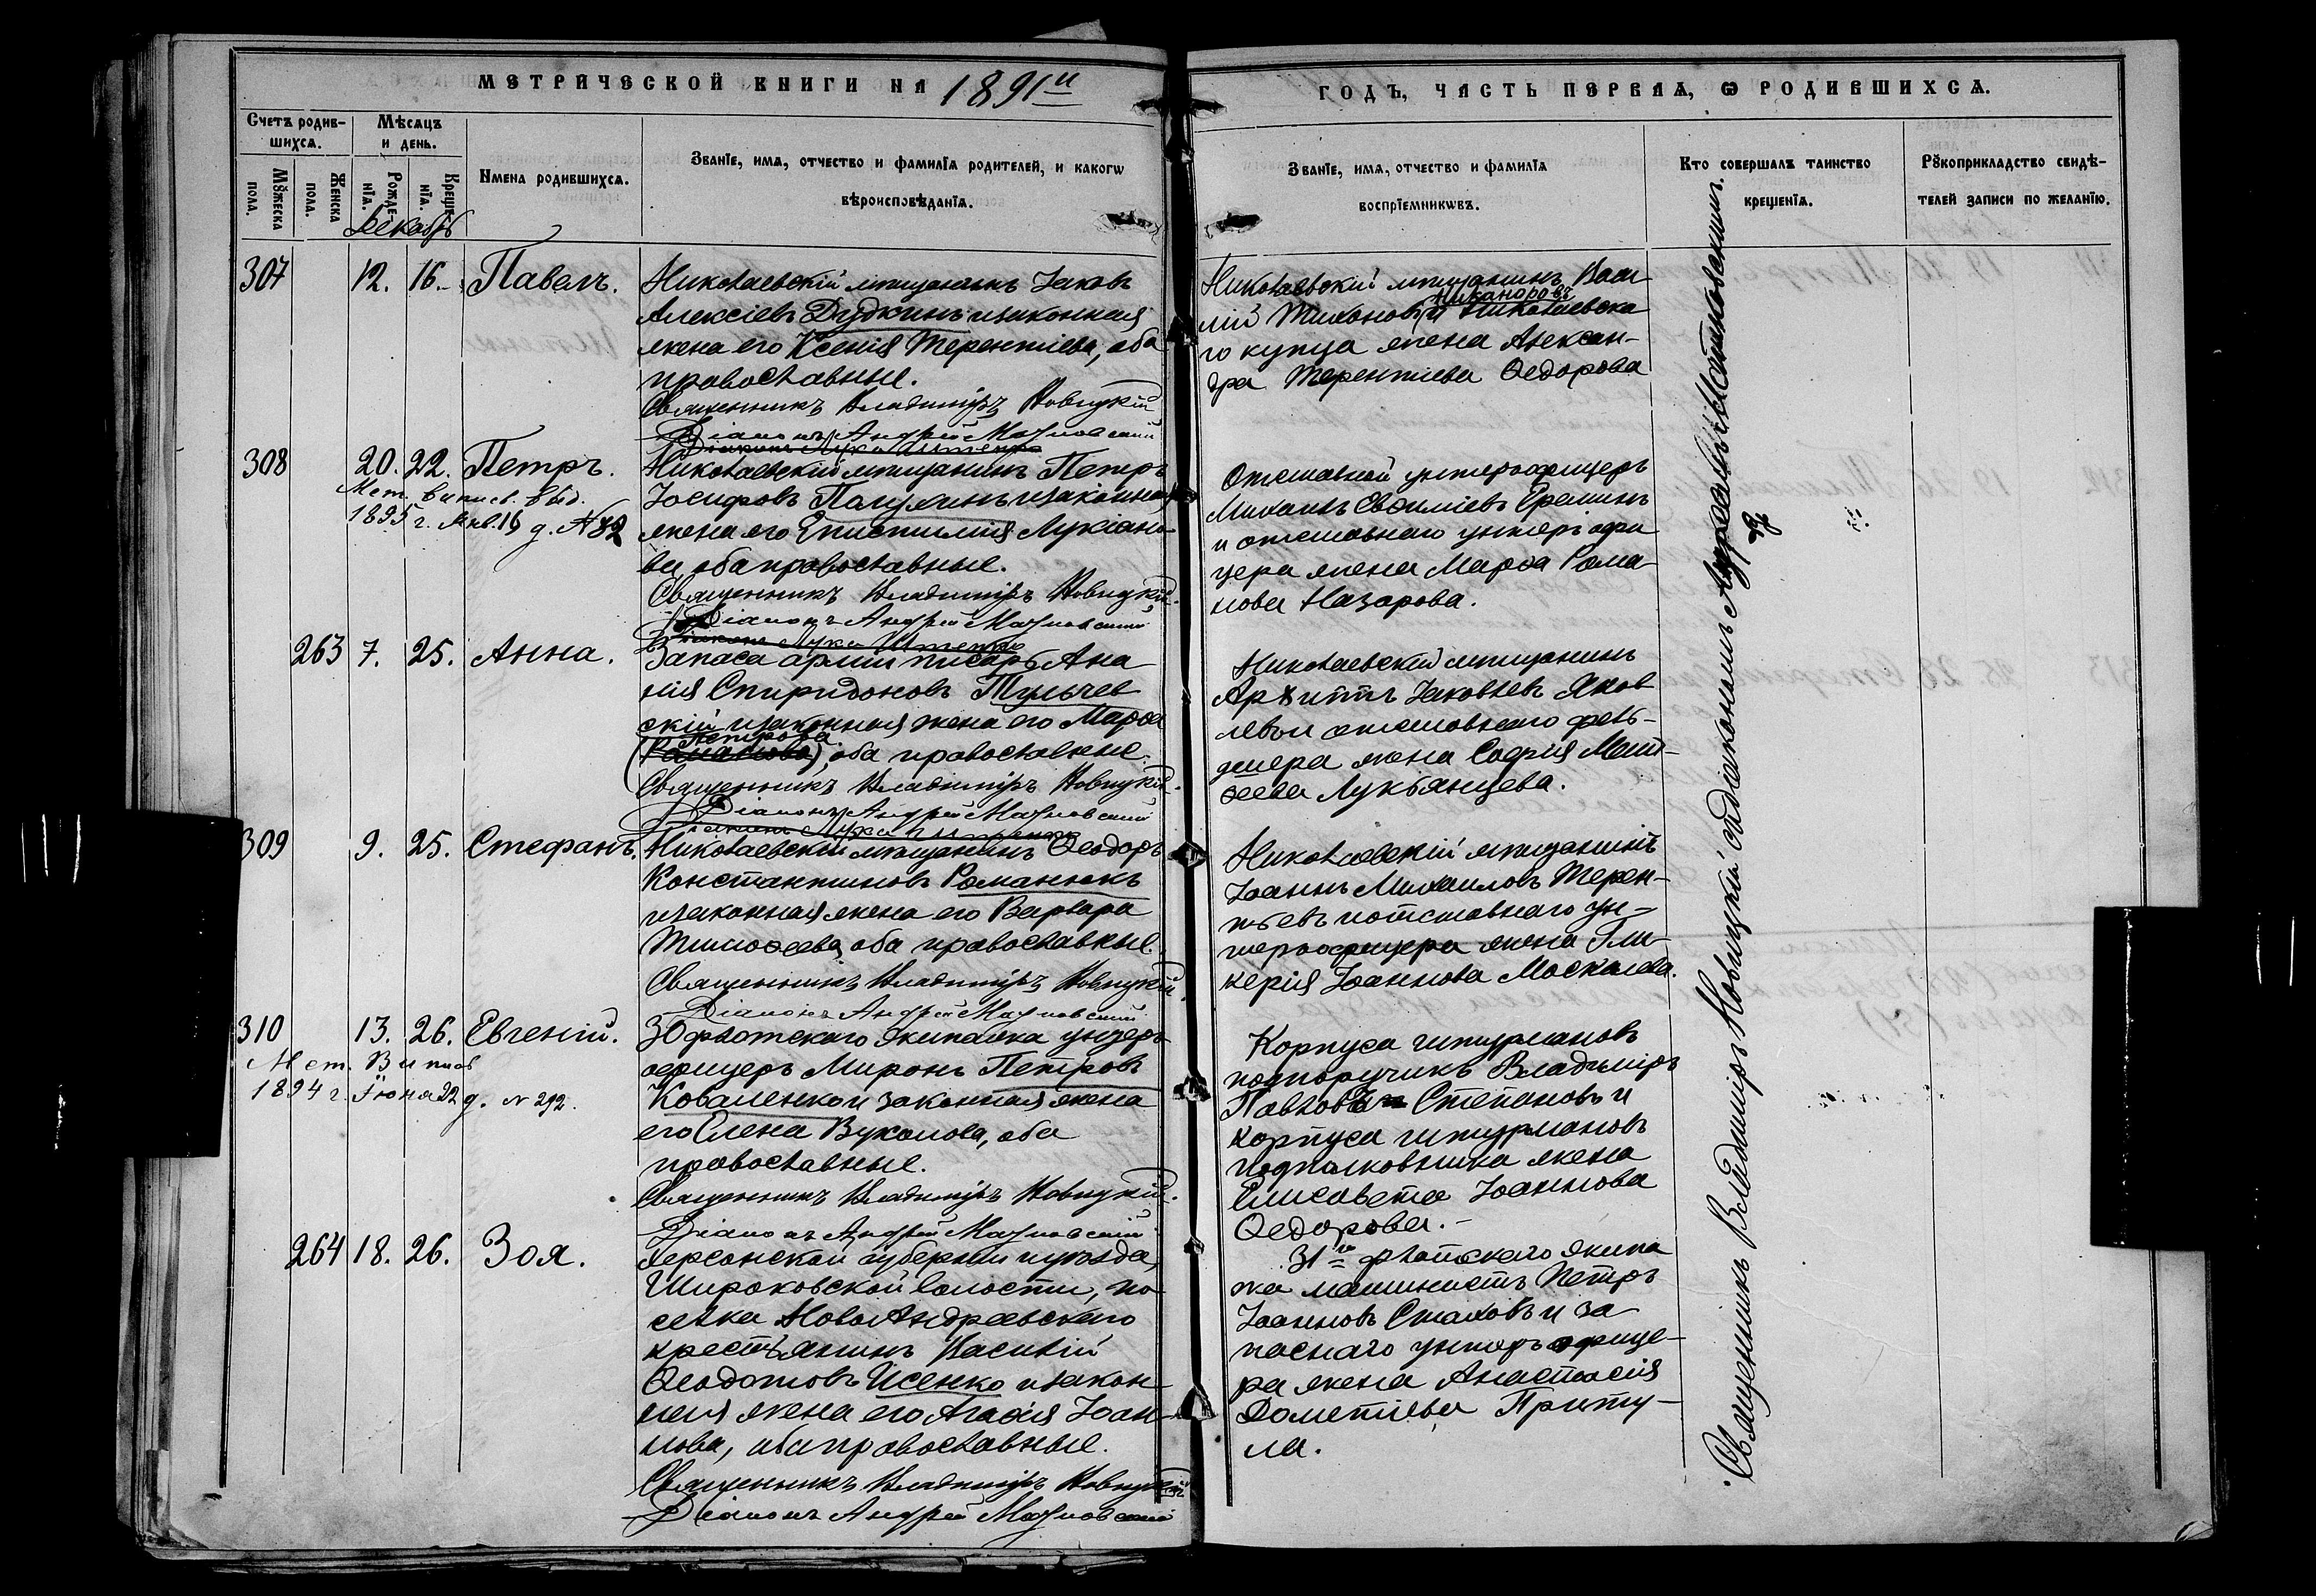 МЕТРИЧЕСКОЙ КНИГИ НА 1891й
ГОДЪ, ЧАСТЬ ПЕРВАЯ, Ѡ РОДИВШИХСѦ.
Счетъ родив-
шихсѧ.
Мꙋжеска
пола.
Женска
пола.
Мѣсѧцъ
и день.
Рожде-
нїѧ.
Креще-
нїѧ.
Имена родившихсѧ.
Званїе, имѧ, отчество и фамилїѧ родителей, и какогѡ
вѣроисповѣданїѧ.
Званїе, имѧ, отчество и фамилїѧ
воспрїемникѡвъ.
Кто совершалъ таинство
крещенїѧ.
Рꙋкоприкладство свидѣ-
телей записи по желанїю.
Декабрь
307 12. 16. Павелъ.
Николаевскій мѣщанинъ Іаковъ
Алексіевъ Дудкинъ и законная
жена его Ксенія Терентіева, оба
православные.
Священникъ Владиміръ Новицкій
Діаконъ Андрей
Николаевскій мѣщанинъ Васи-
лій Тихоновъ Никаноровъ и Николаевска
го купца жена Алексан-
дра Терентіева Ѳедорова
308 20. 22. Петръ.
Мет. выпись выд.
1895 г. Янв. 19 д. № 82
Николаевскій мѣщанинъ Петръ
Іосифовъ и законная
жена его Лукіано-
ва оба православные.
Священникъ Владиміръ Новицкій.
Діаконъ Андрей
Отставной унтерофицеръ
Михаилъ Евѳиміевъ Ереминъ
и отставнаго унтеръ офи
цера жена Марѳа Рома-
нова Назарова.
263 7. 25. Анна.
Запаса арміи писарь Ана
нія Спиридоновъ Тульчев
скій и законная жена его Марѳа
Петрова
(Романова), оба православные.
Священникъ Владиміръ Новицкій.
Діаконъ Андрей
Николаевскій мѣщанинъ
Іаковлевъ Яков
левъ и отставнаго фельд-
шера жена Софія Мат-
ѳеева Лукьянцева.
309 9. 25. Стефанъ.
Николаевскій мѣщанинъ Ѳеодоръ
Константиновъ Романюкъ
и законная жена его Варвара
Тимоѳеева, оба православные.
Священникъ Владиміръ Новицкій.
Діаконъ Андрей
Николаевскій мѣщанинъ
Іоаннъ Михаиловъ Терен-
тьевъ и отставнаго ун-
терофицера жена Гли-
керія Іоаннова Москалева.
310 13. 26. Евгеній.
Мет. Выпись
1894 г. Іюня 22 д. № 292.
30 флотскаго экипажа унтеръ
офицеръ Миронъ Петровъ
Коваленко и законная жена
его Елена Вуколова, оба
православные.
Священникъ Владиміръ Новицкій.
Діаконъ Андрей
Корпуса штурмановъ
подпоручикъ Владиміръ
Павловъ Степановъ и
корпуса штурмановъ
подполковника жена
Елисавета Іоаннова
Ѳедорова.
264 18. 26. Зоя.
Херсонской губерніи и уѣзда,
Широковской волости, по
селка Ново Андреевскаго
крестьянинъ Василій
Ѳеодотовъ Исенко и закон
ная жена его Агаѳія Іоан
нова, оба православные.
Священникъ Владиміръ Новицкій
Діаконъ Андрей
31го флотскаго экипа
жа машинистъ Петръ
Іоанновъ Стаховъ и за
паснаго унтеръ офице-
ра жена Анастасія
Дометіева Приту-
ла.
Священникъ Владиміръ Новицкій съ діакономъ Андреемъ